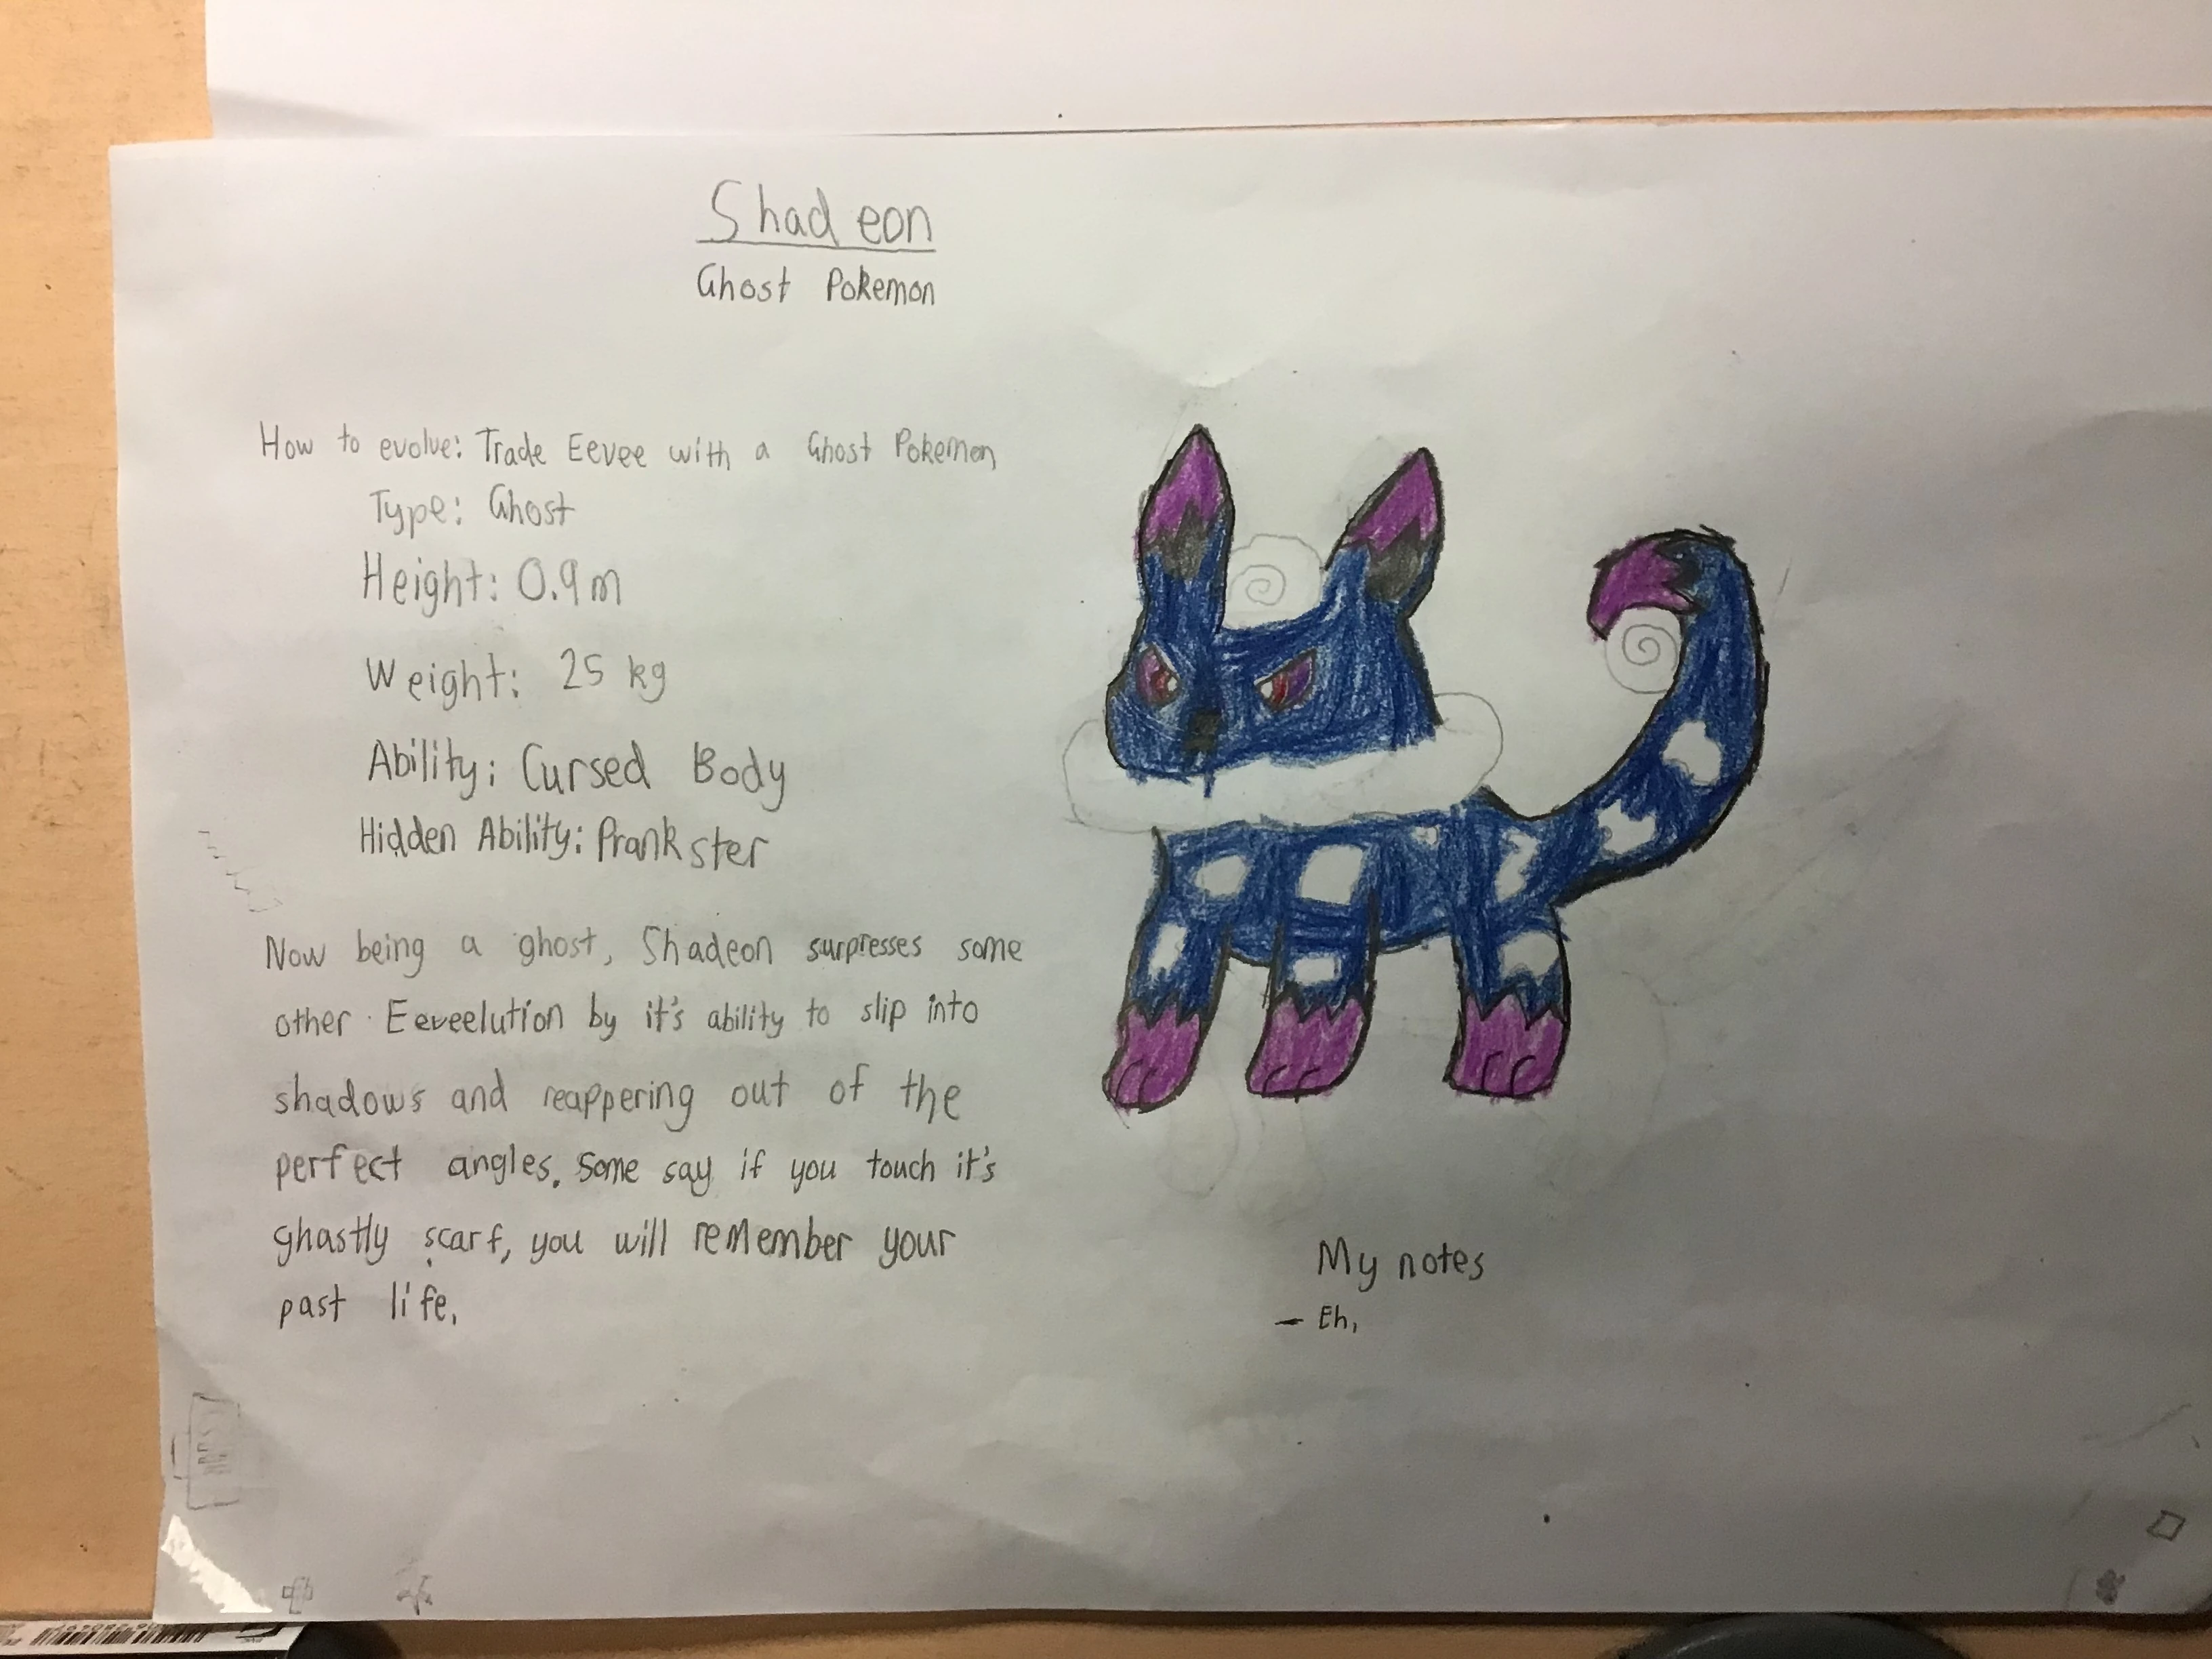 Shadeon
Ghost Pokemon
How to evolve: Trade Eevee with a Ghost Pokemon
Type: Ghost
Height: 0.9m
Weight: 25 kg
Ability: Cursed Body
Hidden Ability: Prankster
Now being a ghost, Shadeon surpresses some
other Eeveelution by it's ability to slip into
shadows and reappering out of the
perfect angles. Some say if you touch it's
ghastly scarf, you will remember your
past life.
My notes
- Eh,